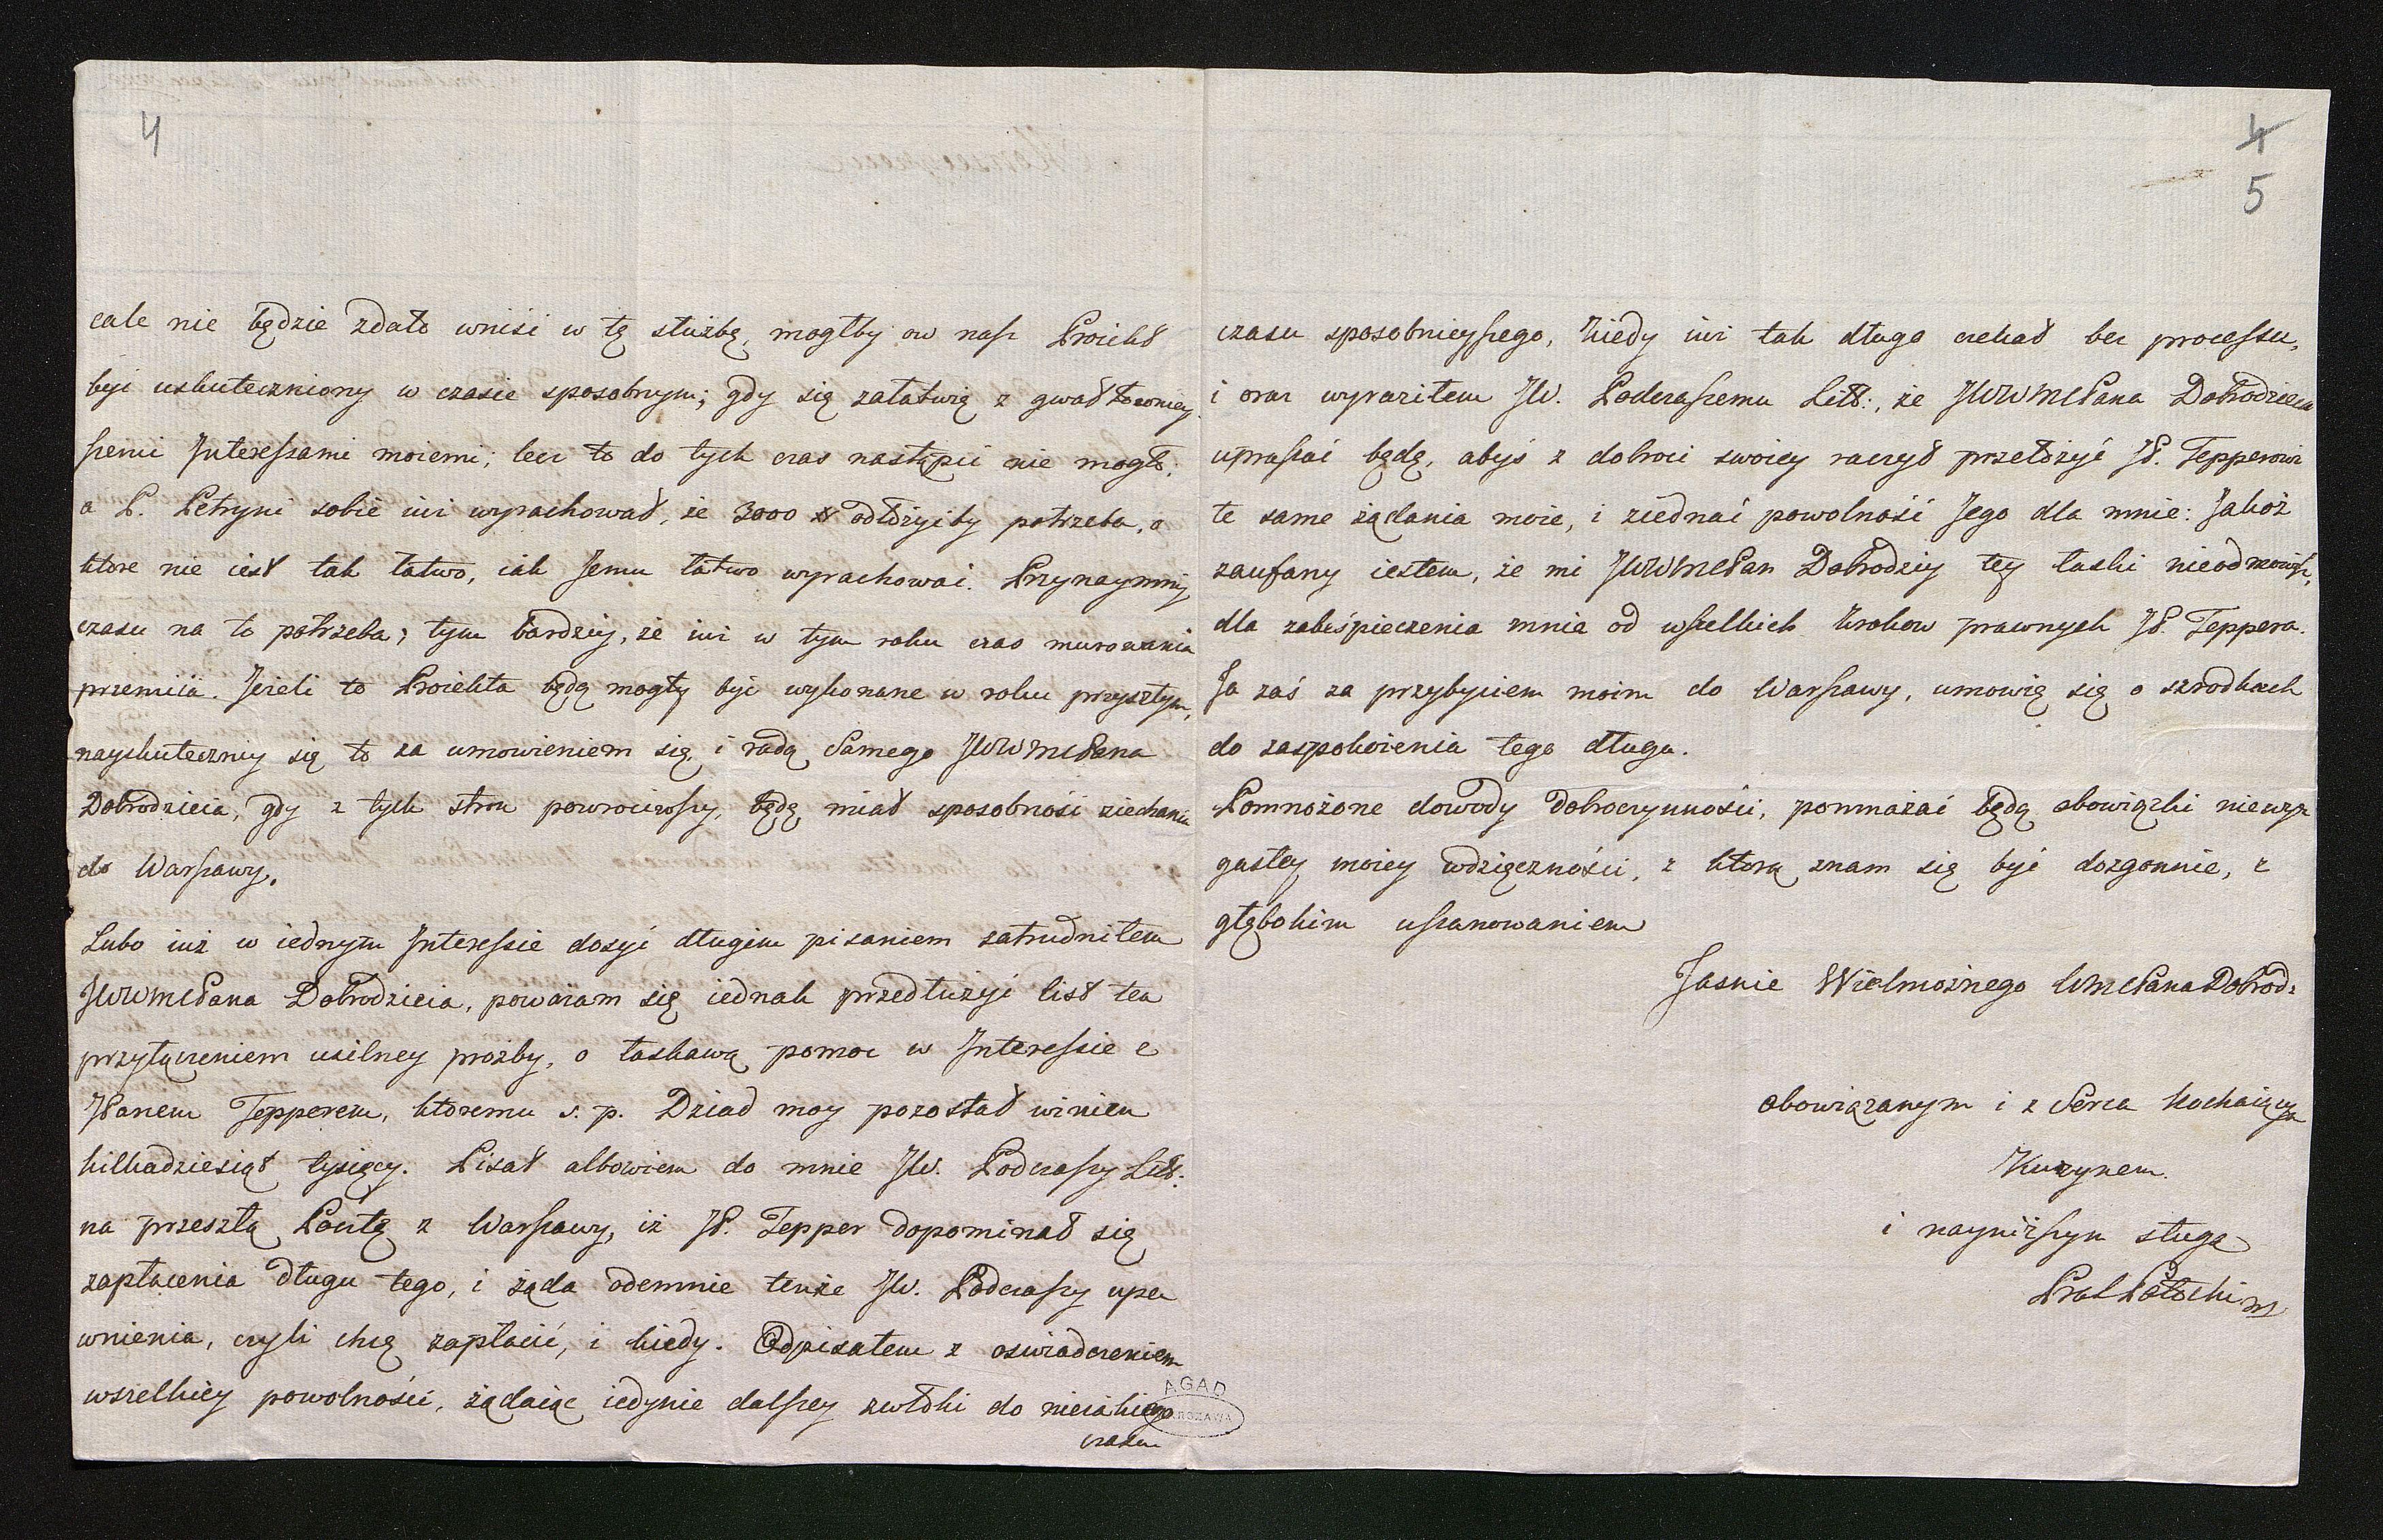 4
cale nie będzie zdało wniść w tę służbę, mogłby ow nasz Proiekt
być uskuteczniony w czasie sposobnym; gdy się załatwię z gwałtowniey
szemi Interessami moiemi; lecz to do tych czas nastąpić nie mogło;
a P. Petryni sobie iuż wyrachował, że 3000 odłożyćby potrzeba, o
ktore nie iest tak łatwo, iak Jemu łatwo wyrachować. Przynaymniy
czasu na to potrzeba; tym bardziy, że iuż w tym roku czas murowania
przemiia. Jeżeli to Proiekta będą mogły być wykonane w roku przyszłym,
nayskuteczniy się to za umowieniem się i radą Samego JWWMCPana
Dobrodzieia, gdy z tych stron powrociwszy, będę miał sposobność ziechania
do Warszawy.
Lubo iuż w iednym Interessie dosyć długim pisaniem zatrudniłem
JWWMCPana Dobrodzieia, poważam się iednak przedłużyć list ten
przyłączeniem usilney prozby, o łaskawą pomoc w Interessie z
JPanem Tepperem, ktoremu s. p. Dziad moy pozostał winien
kilkadziesiąt tysięcy. Pisał albowiem do mnie JW. Podczaszy Litt:
na przeszłą Pocztę z Warszawy, iż JP. Tepper dopominał się
zapłacenia długu tego, i żąda odemnie tenże JW. Podczaszy upe
wnienia, czyli chcę zapłacić, i kiedy. Odpisałem z oswiadczeniem
wszelkiey powolności, żądaiąc iedynie dalszey zwłoki do nieiakiego
czasu
AGAD
WARSZAWA
4
5
czasu sposobnieyszego, kiedy iuż tak długo czekał bez processu,
i oraz wyraziłem JW. Podczaszemu Litt:, że JWWMCPana Dobrodzieia
upraszać będę, abyś z dobroci swoiey raczył przełożyć JP. Tepperowi
te same żądania moie, i ziednać powolność Jego dla mnie: Jakoż
zaufany iestem, że mi JWWMCPan Dobrodziy tey łaski nieodmowisz,
dla zabespieczenia mnie od wszelkich krokow prawnych JP. Teppera.
Ja zaś za przybyciem moim do Warszawy, umowię się o szrodkach
do zaspokoienia tego długu.
Pomnożone dowody dobroczynności, pomnażać będą obowiązki niewy
gasłey moiey wdzięczności, z ktorą znam się być dozgonnie, z
głębokim uszanowaniem
Jasnie Wielmożnego WMCPana Dobrodz
obowiązanym i z Serca kochaiącym
Kuzynem
i nayniższym sługą
Potocki